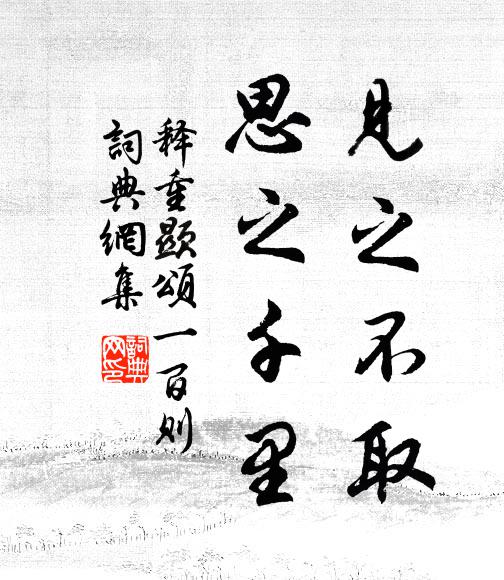 見之不取
思之千里
释重顯頌一百则
詞典網集
詞典网印